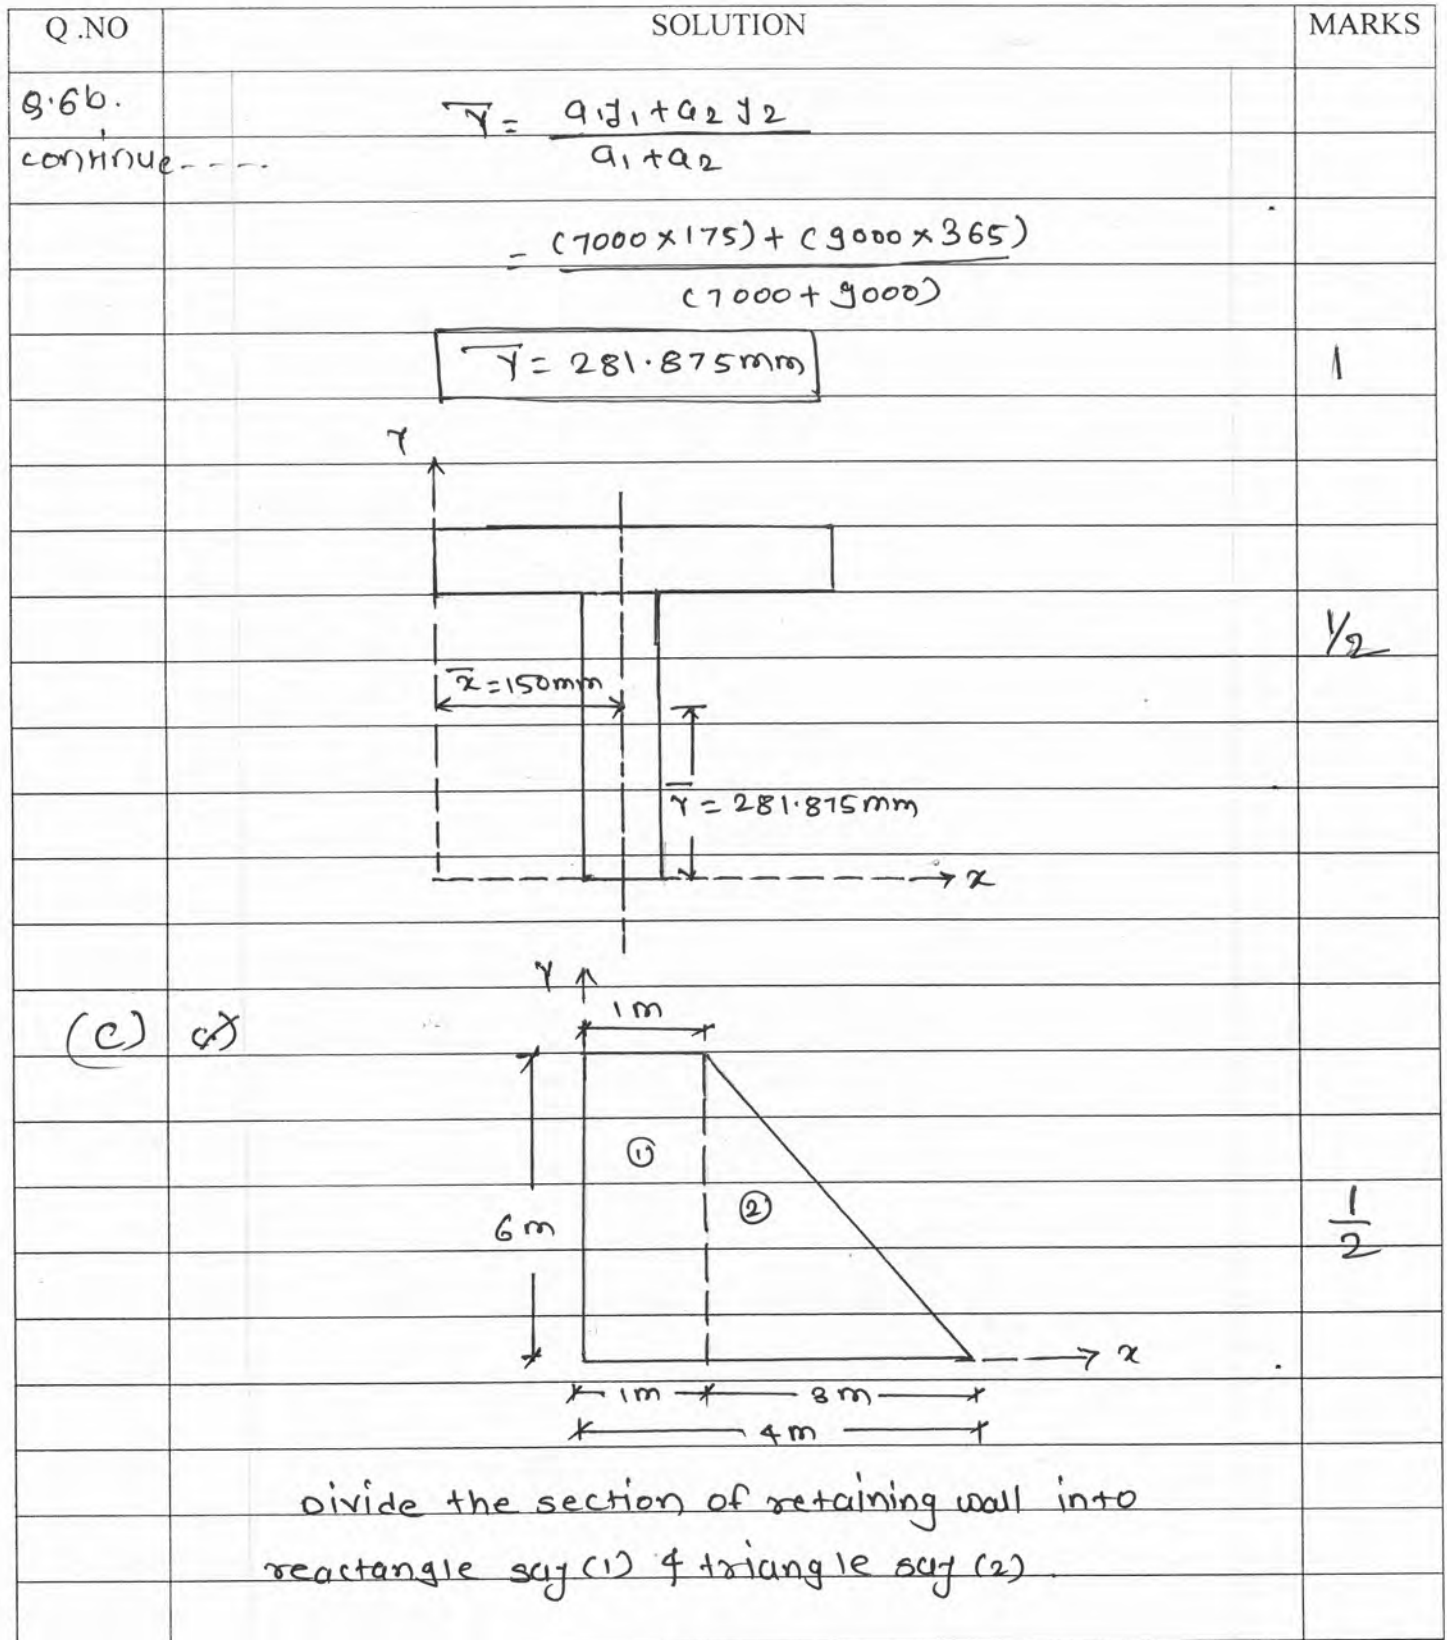 Q .NO SOLUTION MARKS
Q.6b.
continue----.
Y̅ = a1y1 + a2y2 / a1 + a2
= (7000 × 175) + (9000 × 365) / (7000 + 9000)
Y̅ = 281.875mm 1
Y
1/2
x̅ = 150mm
Y̅ = 281.875mm
x
Y
1m
(c)
①
②
6m
1/2
x
1m 3m
4m
Divide the section of retaining wall into
reactangle say (1) & triangle say (2).